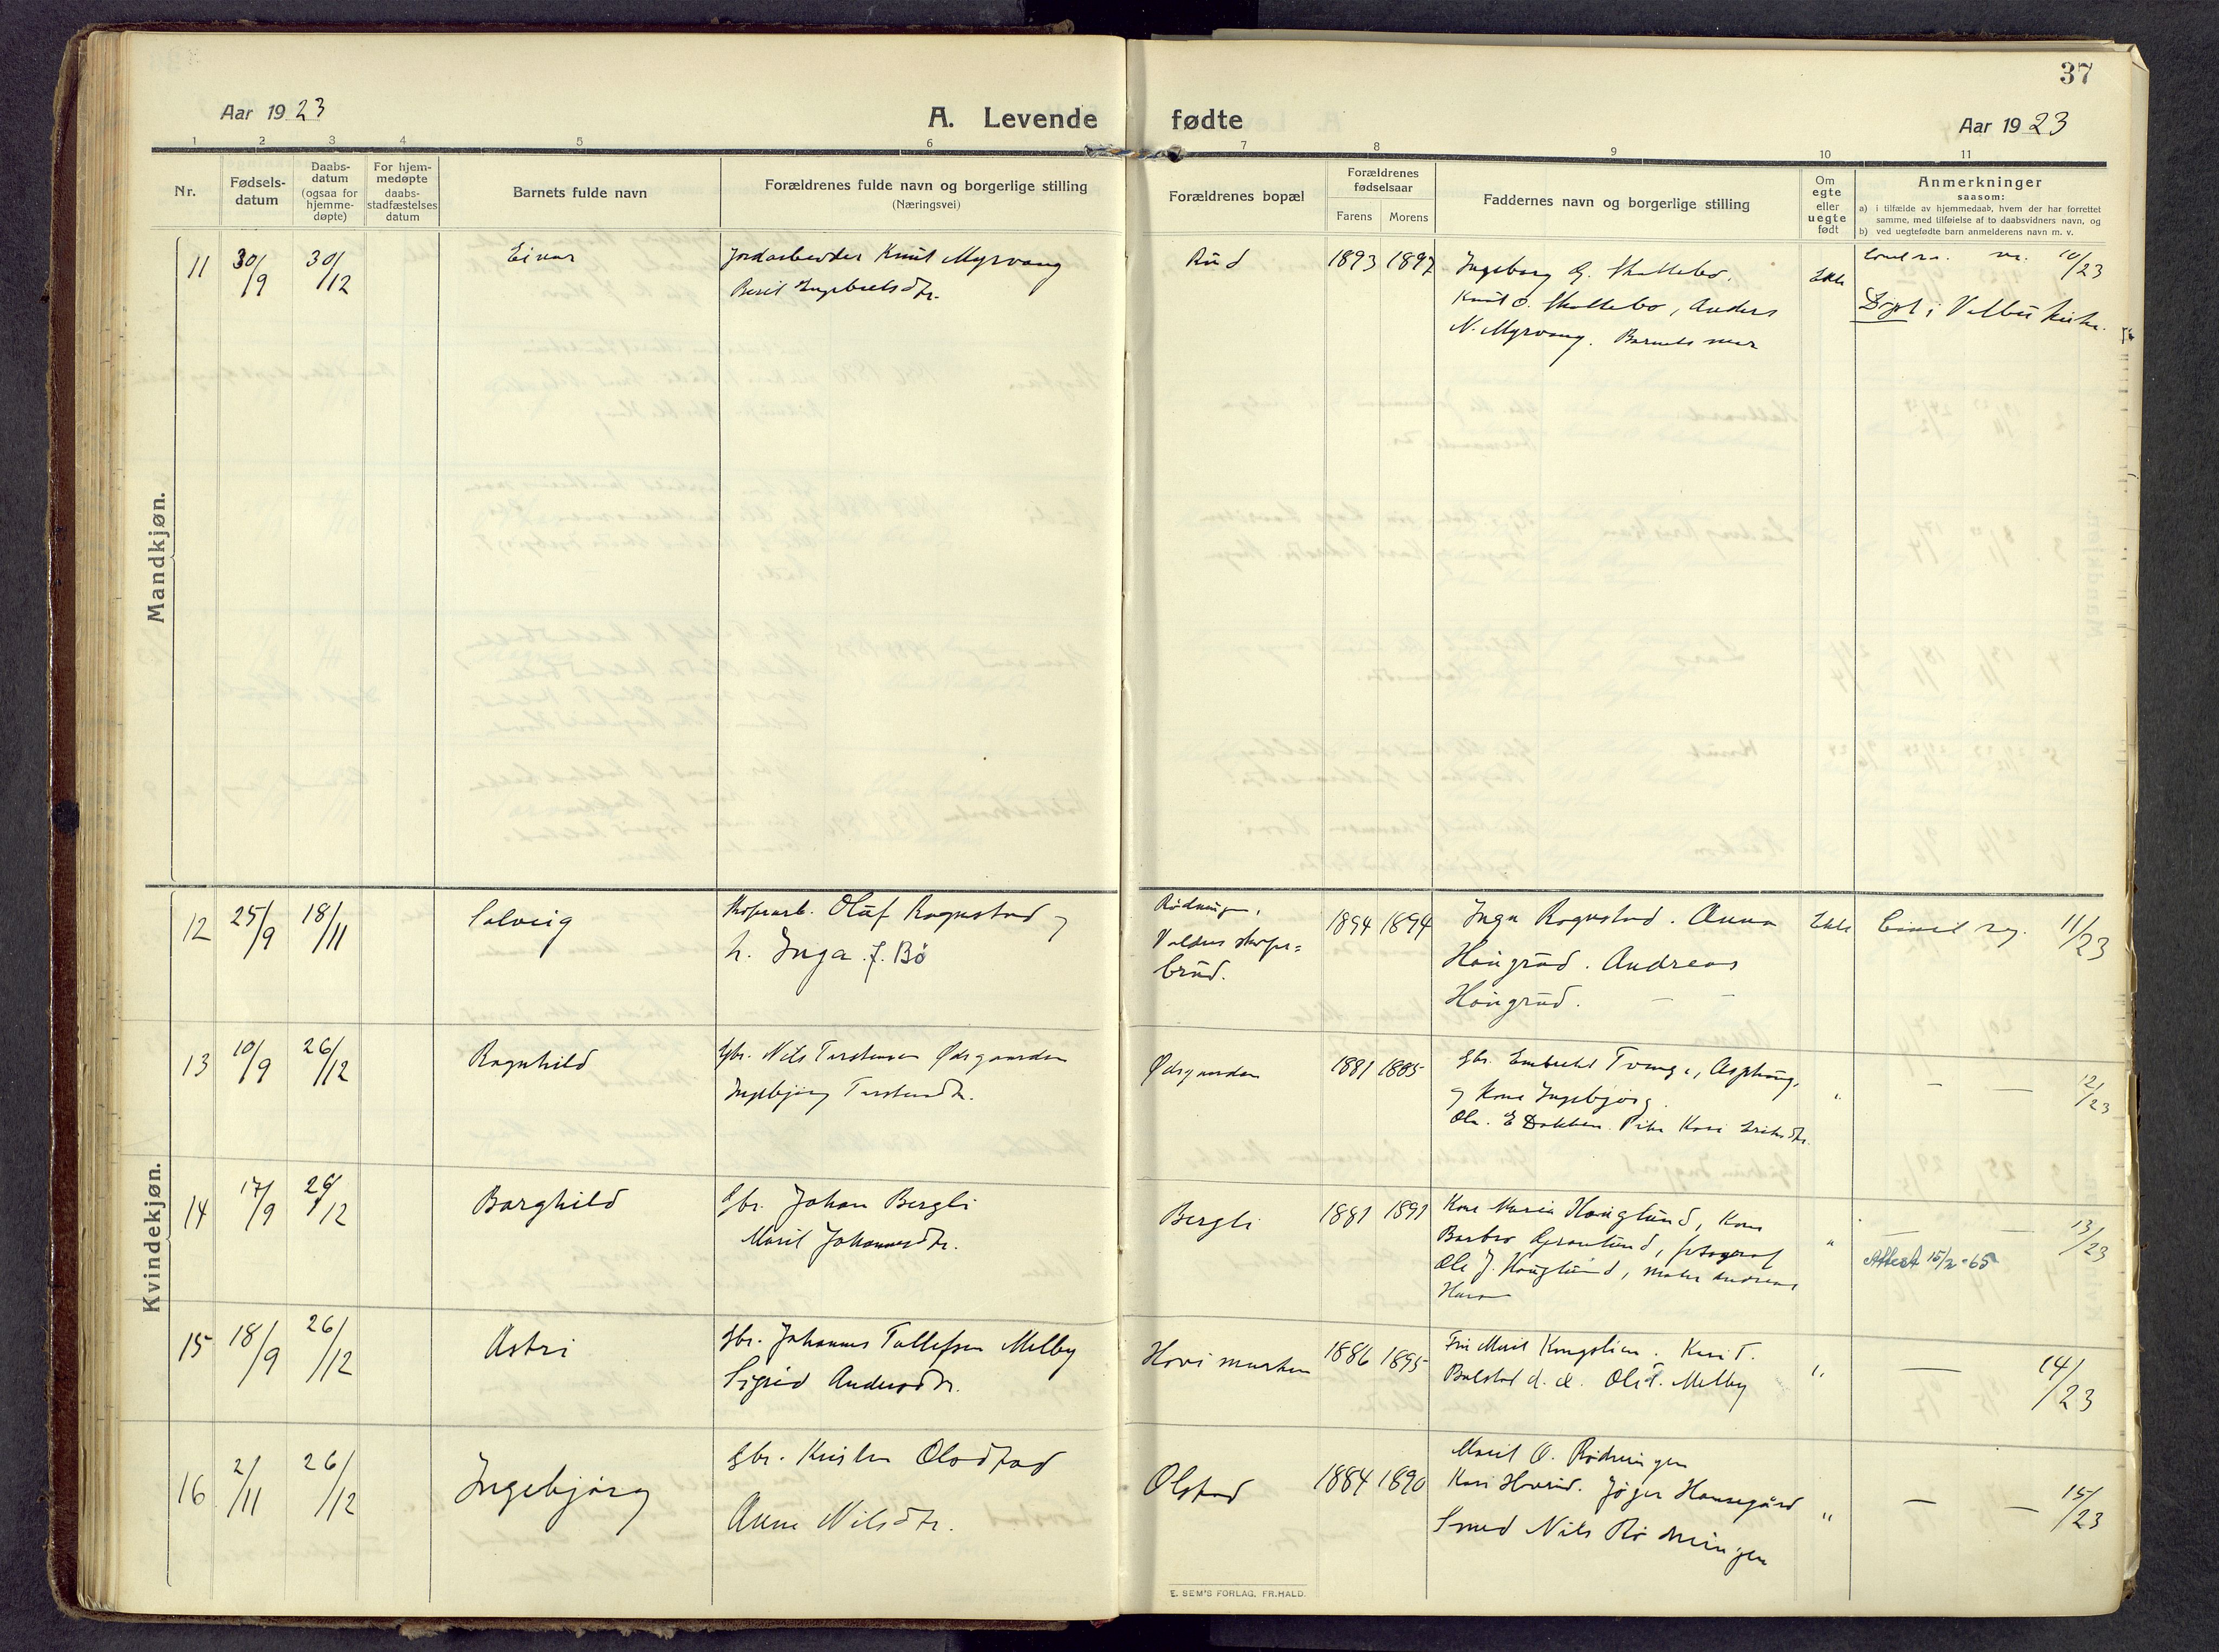 37
Aar 1923
A. Levende fødte
Aar 1923
1 2 3 4 5 6 7 8 9 10 11
Nr.
Fødsels-
datum
Daabs-
datum
(ogsaa for
hjemme-
døpte)
For hjem-
medøpte
daabs-
stadfæstelses
datum
Barnets fulde navn
Forældrenes fulde navn og borgerlige stilling
(Næringsvei)
Forældrenes bopæl
Forældrenes
fødselsaar
Farens Morens
Faddernes navn og borgerlige stilling
Om
egte
eller
uegte
født
Anmerkninger
saasom:
a) i tilfælde av hjemmedaab, hvem der har forrettet
samme, med tilføielse af to daabsvidners navn, og
b) ved uegtefødte barn anmelderens navn m. v.
Mandkjøn.
11 30/9 30/12 Einar
Jordarbeider Knut Myrvang
Berit Ingebrets dtr.
Rud 1893 1897
Ingeborg G. Skattebo.
Knut O. Skattebo, Anders
N. Myrvang. Barnets mor
Ekte
10/23
Døpt i Volbu kirke.
Kvindekjøn.
12 25/9 18/11 Solveig
Olaf Rognstad og
h. Inga J. Bø
Rødningen,
Valdres skifer=
brud.
1894 1894
Inga Rognstad. Anna
Haugrud. Andreas
Haugrud.
Ekte Civil reg. 11/23
13 10/9 26/12 Ragnhild
Gbr. Nils Torstensen Ødegaarden
Ingebjørg Torstensdtr.
Ødegaarden 1881 1885
Gbr. Embrikt Tvenge, Asphaug,
og Kone Ingebjørg.
Ole E Dokken. Pike Kari Eriksdtr.
" — — 12/23
14 17/9 26/12 Borghild
Gbr. Johan Bergli
Marit Johannesdtr.
Bergli 1881 1891
Kone Maria Hauglund, Kone
Barbro Granlund, fotograf
Ole J. Hauglund, maler Andreas
" — — 13/23
Attest 15/2-65
15 18/9 26/12 Astri
Gbr. Johannes Tollefsen Melby
Sigrid Andersdtr.
Hovi marken 1886 1895
Marit Kongslien. Kari T.
Bolstad d. e. Ole T. Melby
" — 14/23
16 2/11 26/12 Ingebjørg
Gbr. Kristen Olsstad
Anne Nilsdtr.
Olstad 1884 1890
Marit O. Rødningen
Kari Hovrud. Jøger Hausegård
Smed Nils Rødningen
" — — 15/23
E. SEM'S FORLAG. FR.HALD.